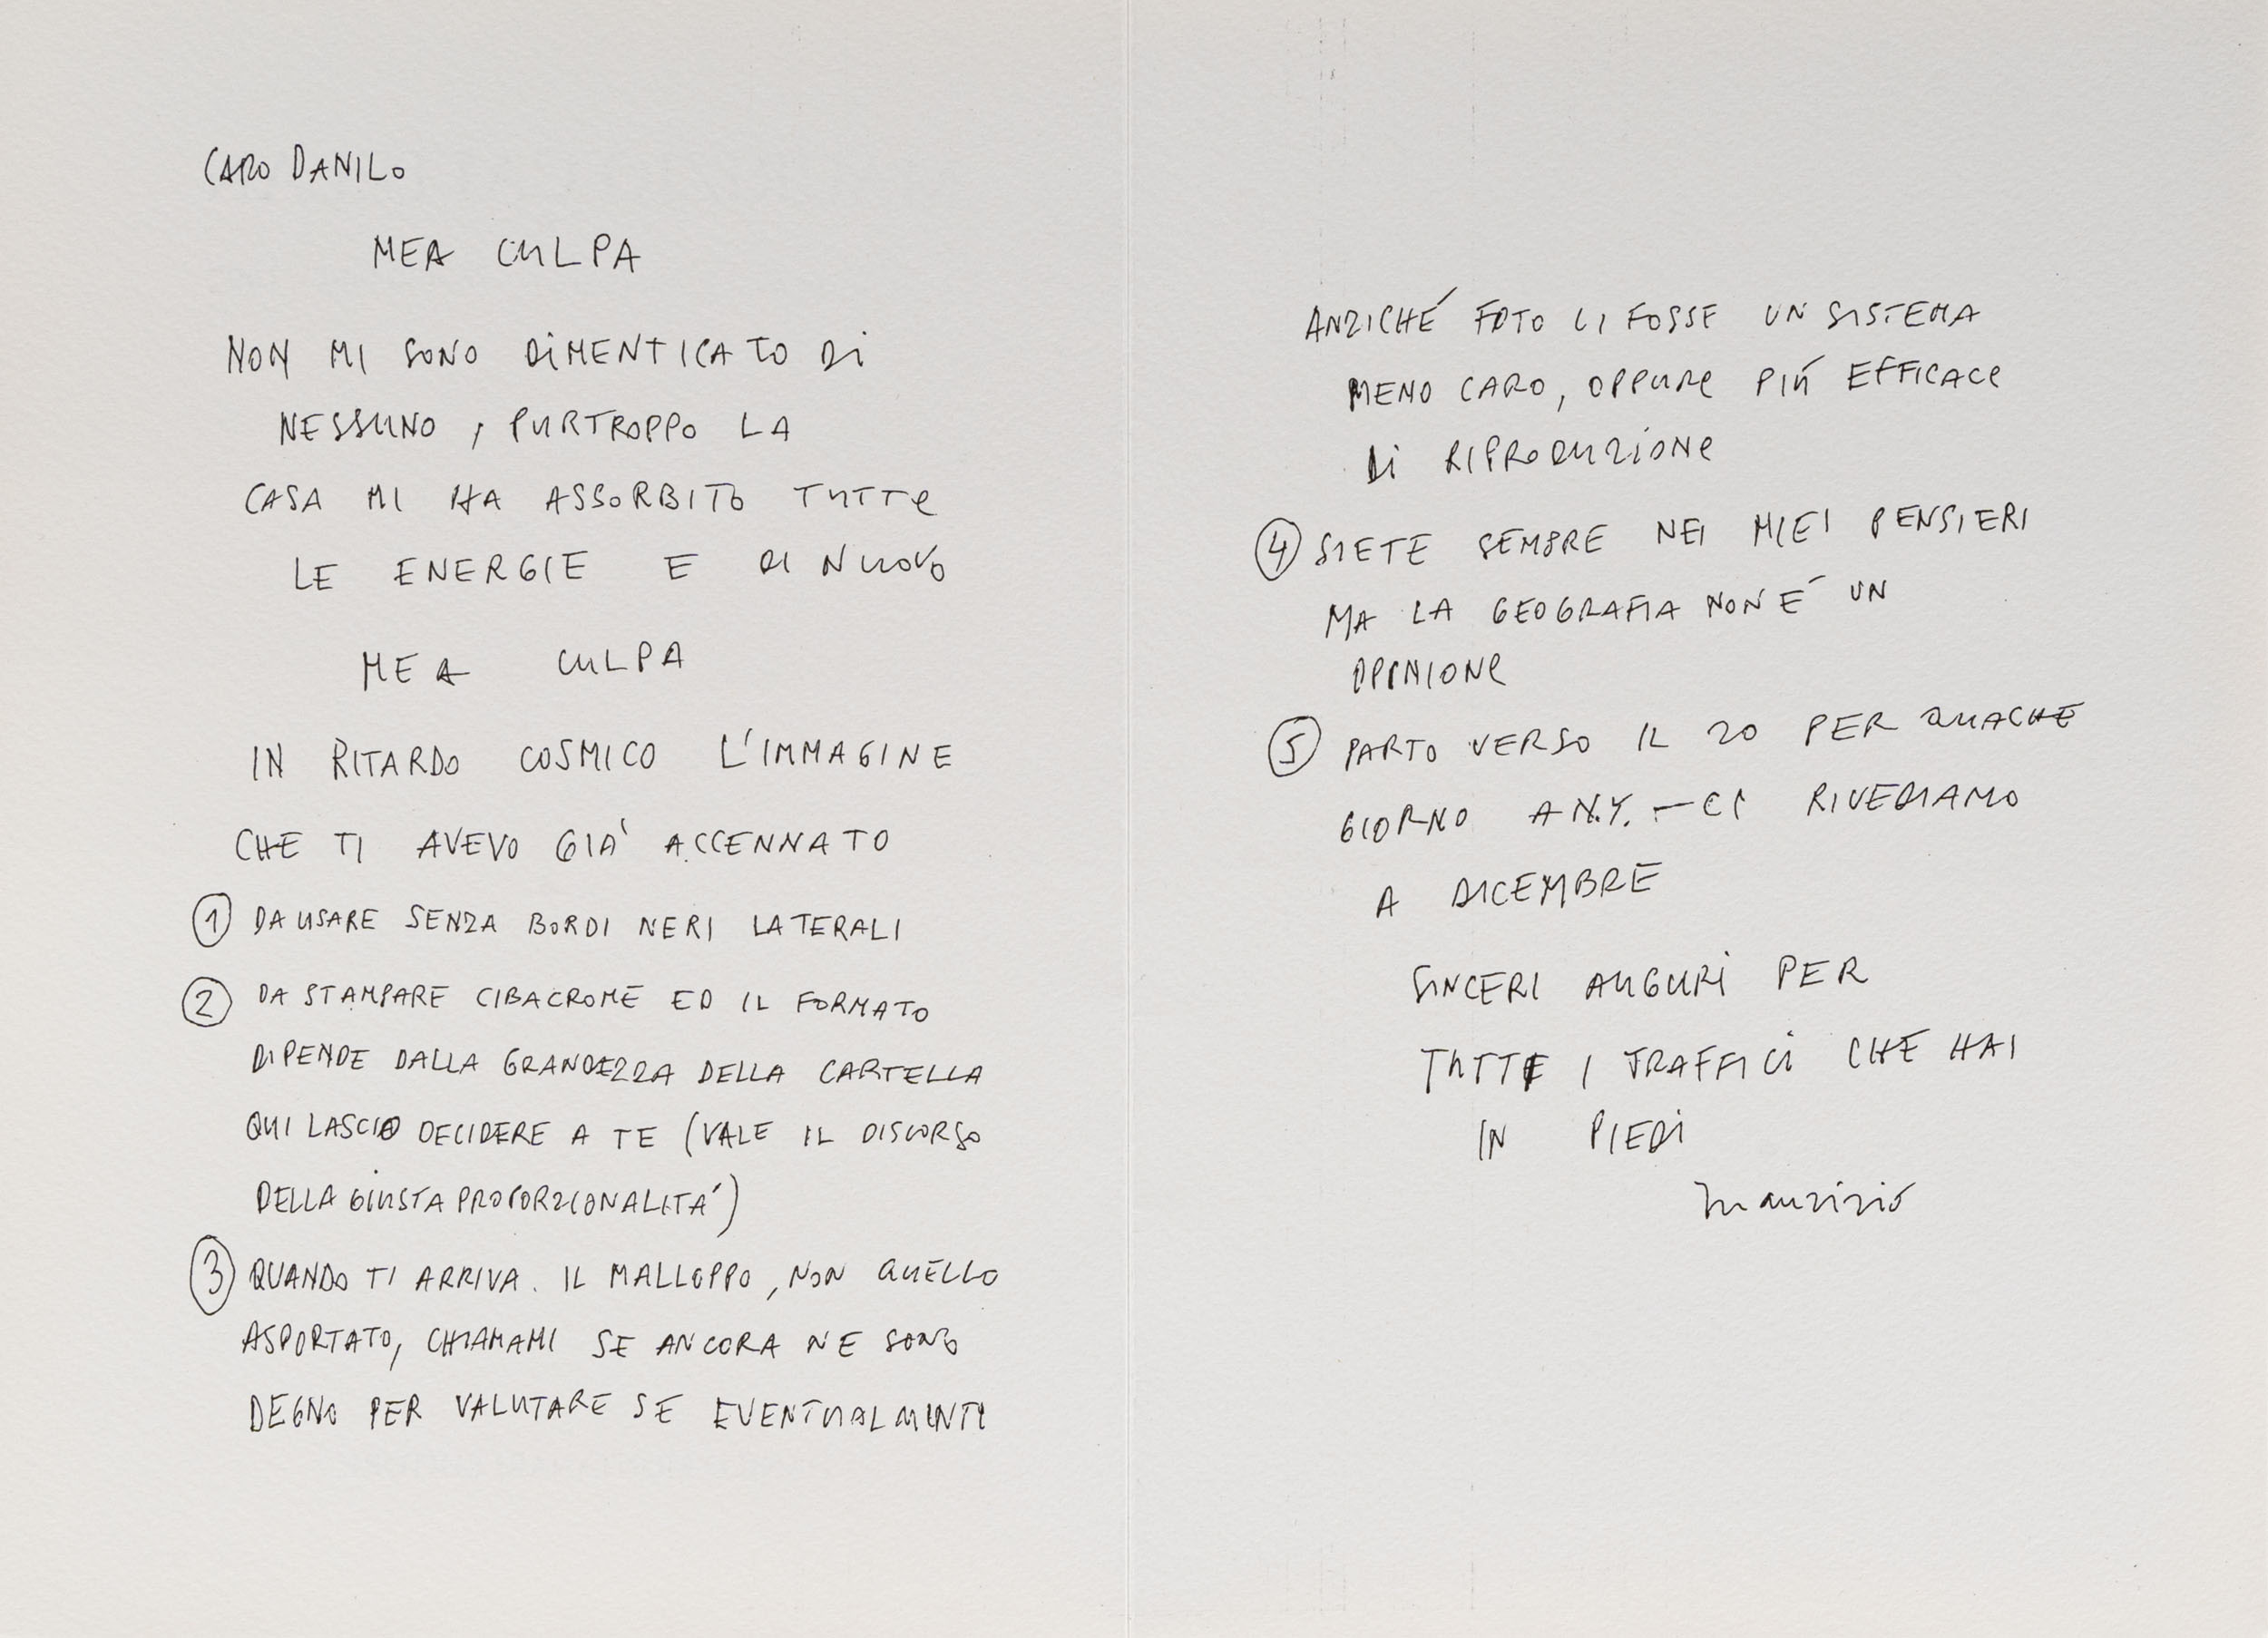 CARO DANILO
MEA CULPA
NON MI SONO DIMENTICATO DI
NESSUNO, PURTROPPO LA
CASA MI HA ASSORBITO TUTTE
LE ENERGIE E DI NUOVO
MEA CULPA
IN RITARDO COSMICO L'IMMAGINE
CHE TI AVEVO GIA' ACCENNATO
1 DA USARE SENZA BORDI NERI LATERALI
2 DA STAMPARE CIBACROME ED IL FORMATO
DIPENDE DALLA GRANDEZZA DELLA CARTELLA
QUI LASCIO DECIDERE A TE (VALE IL DISCORSO
DELLA GIUSTA PROPORZIONALITA')
3 QUANDO TI ARRIVA. IL MALLOPPO, NON QUELLO
ASPORTATO, CHIAMAMI SE ANCORA NE SONO
DEGNO PER VALUTARE SE EVENTUALMENTE
ANZICHÉ FOTO CI FOSSE UN SISTEMA
MENO CARO, OPPURE PIÚ EFFICACE
DI RIPRODUZIONE
4 SIETE SEMPRE NEI MIEI PENSIERI
MA LA GEOGRAFIA NON É UN
OPINIONE
5 PARTO VERSO IL 20 PER QUACHE
GIORNO A N.Y. — CI RIVEDIAMO
A DICEMBRE
SINCERI AUGURI PER
TUTTI I TRAFFICI CHE HAI
IN PIEDI
Maurizio